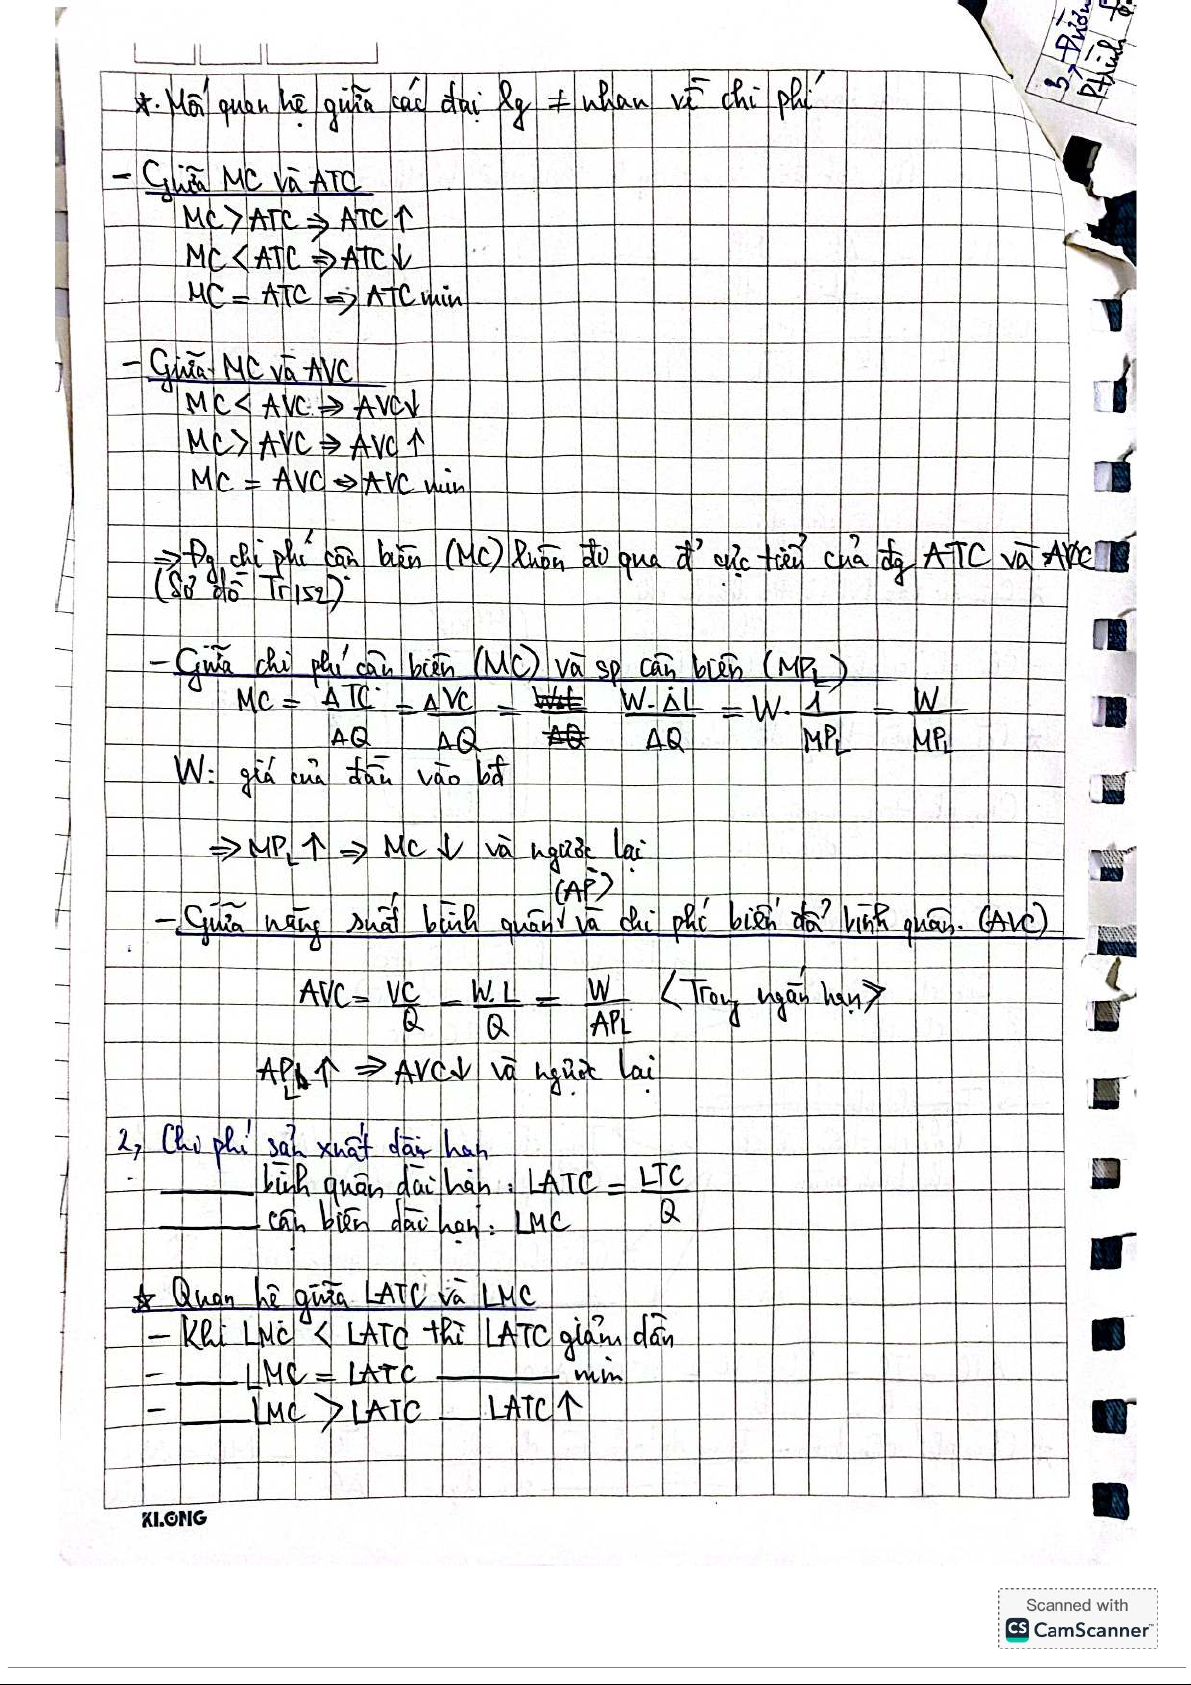 3, Đườn
Pthình đ
*. Mối quan hệ giữa các đại lg ≠ nhau về chi phí
- Giữa MC và ATC
MC > ATC => ATC ↑
MC < ATC => ATC ↓
MC = ATC => ATC min
- Giữa MC và AVC
MC < AVC => AVC ↓
MC > AVC => AVC ↑
MC = AVC => AVC min
=> Đg chi phí cận biên (MC) luôn đi qua đ' cực tiểu của đg ATC và AVC
(Sơ đồ Tr 152)
- Giữa chi phí cận biên (MC) và sp cận biên (MP_L)
MC = ΔTC/ΔQ = ΔVC/ΔQ = W.ΔL/ΔQ = W. 1/MP_L = W/MP_L
W: giá của đầu vào bđ
=> MP_L ↑ => MC ↓ và ngược lại
(AP)
- Giữa năng suất bình quân và chi phí biến đổi bình quân. (AVC)
AVC = VC/Q = W.L/Q = W/AP_L <Trong ngắn hạn>
AP_L ↑ => AVC ↓ và ngược lại
2, Chi phí sản xuất dài hạn
____ bình quân dài hạn: LATC = LTC/Q
____ cận biên dài hạn: LMC
* Quan hệ giữa LATC và LMC
- Khi LMC < LATC thì LATC giảm dần
- ___ LMC = LATC ______ min
- ___ LMC > LATC __ LATC ↑
KLONG
Scanned with
CS CamScanner